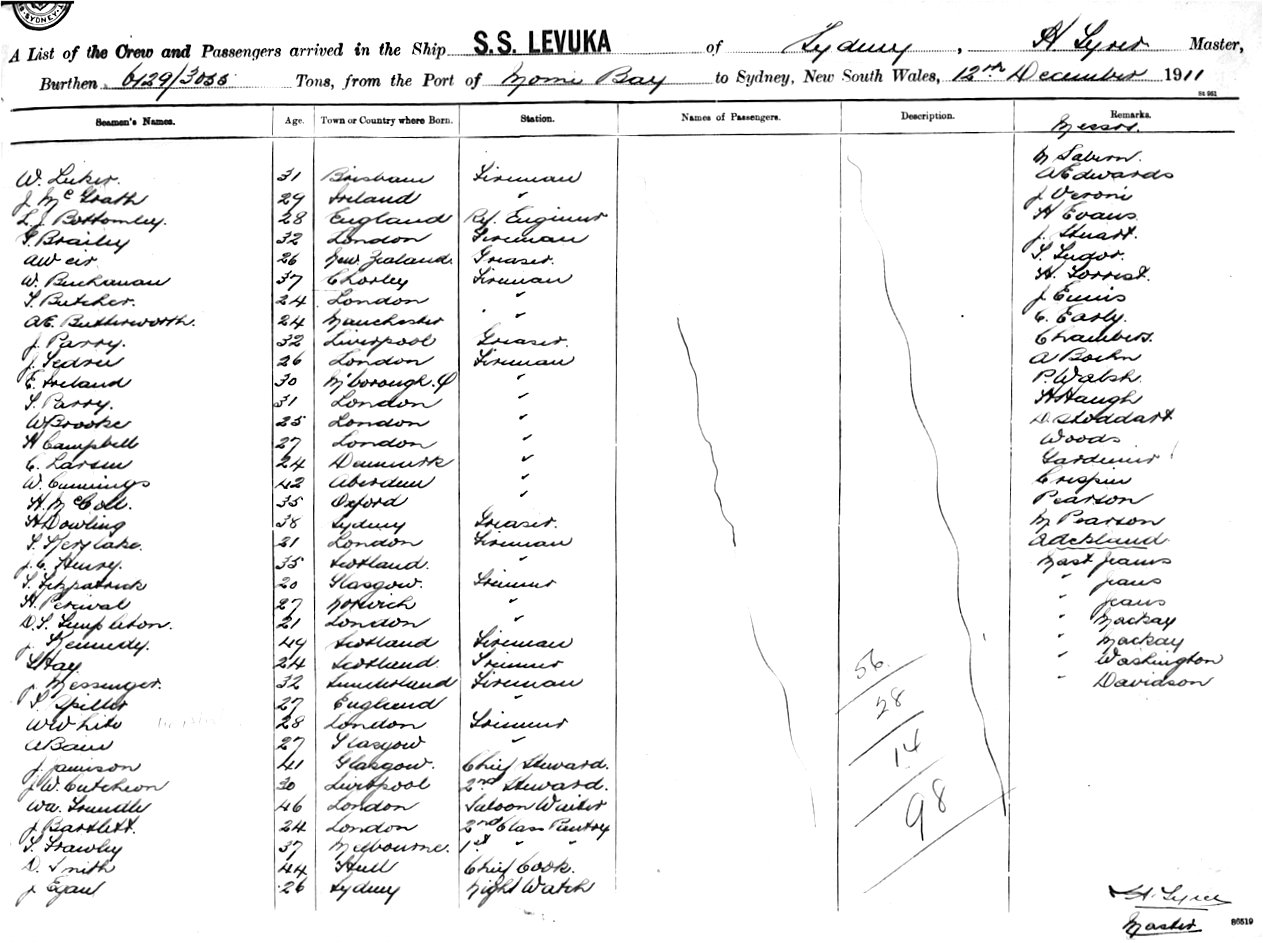 SYDNEY
A List of the Crew and Passengers arrived in the Ship S.S. LEVUKA of Sydney, H Syrer Master,
Burthen 6129/3055 Tons, from the Port of Momi Bay to Sydney, New South Wales, 12th December 1911
St 961
Seamen's Names. Age. Town or Country where Born. Station. Names of Passengers. Description. Remarks.
Messrs.
M Sabern.
W. Luker. 31 Brisbane Fireman A Edwards
J McGrath 29 Ireland " J Veroni
L. J Bottomley. 28 England Ref. Engineer H Evans
Brailey 32 London Fireman J. Stuart.
A Weir 26 New Zealand. Greaser. Tudor.
W. Buchanan 37 Chorley Fireman H. Forrest.
Butcher. 24 London " J Ennis
A.E. Butterworth. 24 Manchester " C. Early.
J. Parry. 32 Liverpool Greaser. Chambers.
J. 26 London Fireman A Boehn
E. Ireland 30 M'borough. Q " P. Walsh.
Parry. 31 London " H Haugh
W Brooke 25 London " D. Stoddart
H Campbell 27 London " Woods
C. Larsen 24 Denmark " Gardiner
W. Cummings 42 Aberdeen " Crispin
H. McColl. 35 Oxford " Pearson
H Dowling 38 Sydney Greaser. M Pearson
Kerslake. 21 London Fireman Adckland.
J. C. Henry. 35 Scotland. " Mast Jeans
Fitzpatrick 20 Glasgow. Trimmer " Jeans
H. Percival 27 Norwich " " Jeans
D. S. Templeton. 21 London " " Mackay
J. Kennedy. 49 Scotland Fireman " Mackay
Hay 24 Scotland. Trimmer " Washington
J Messenger. 32 Sunderland Fireman " Davidson
Spiller 27 England "
W White 28 London Trimmer
A Bain 27 Glasgow "
J. Jamison 41 Glasgow. Chief Steward.
J. W. Cutcheon 30 Liverpool 2nd Steward.
Wm. Trundle 46 London Saloon Waiter
J Bartlett. 24 London 2nd Class Pantry
Frawley 37 Melbourne. 1st " "
D. Smith 44 Hull Chief Cook.
J Egan 26 Sydney Night Watch
56
28
14
98
H. Syrer
Master
S6519